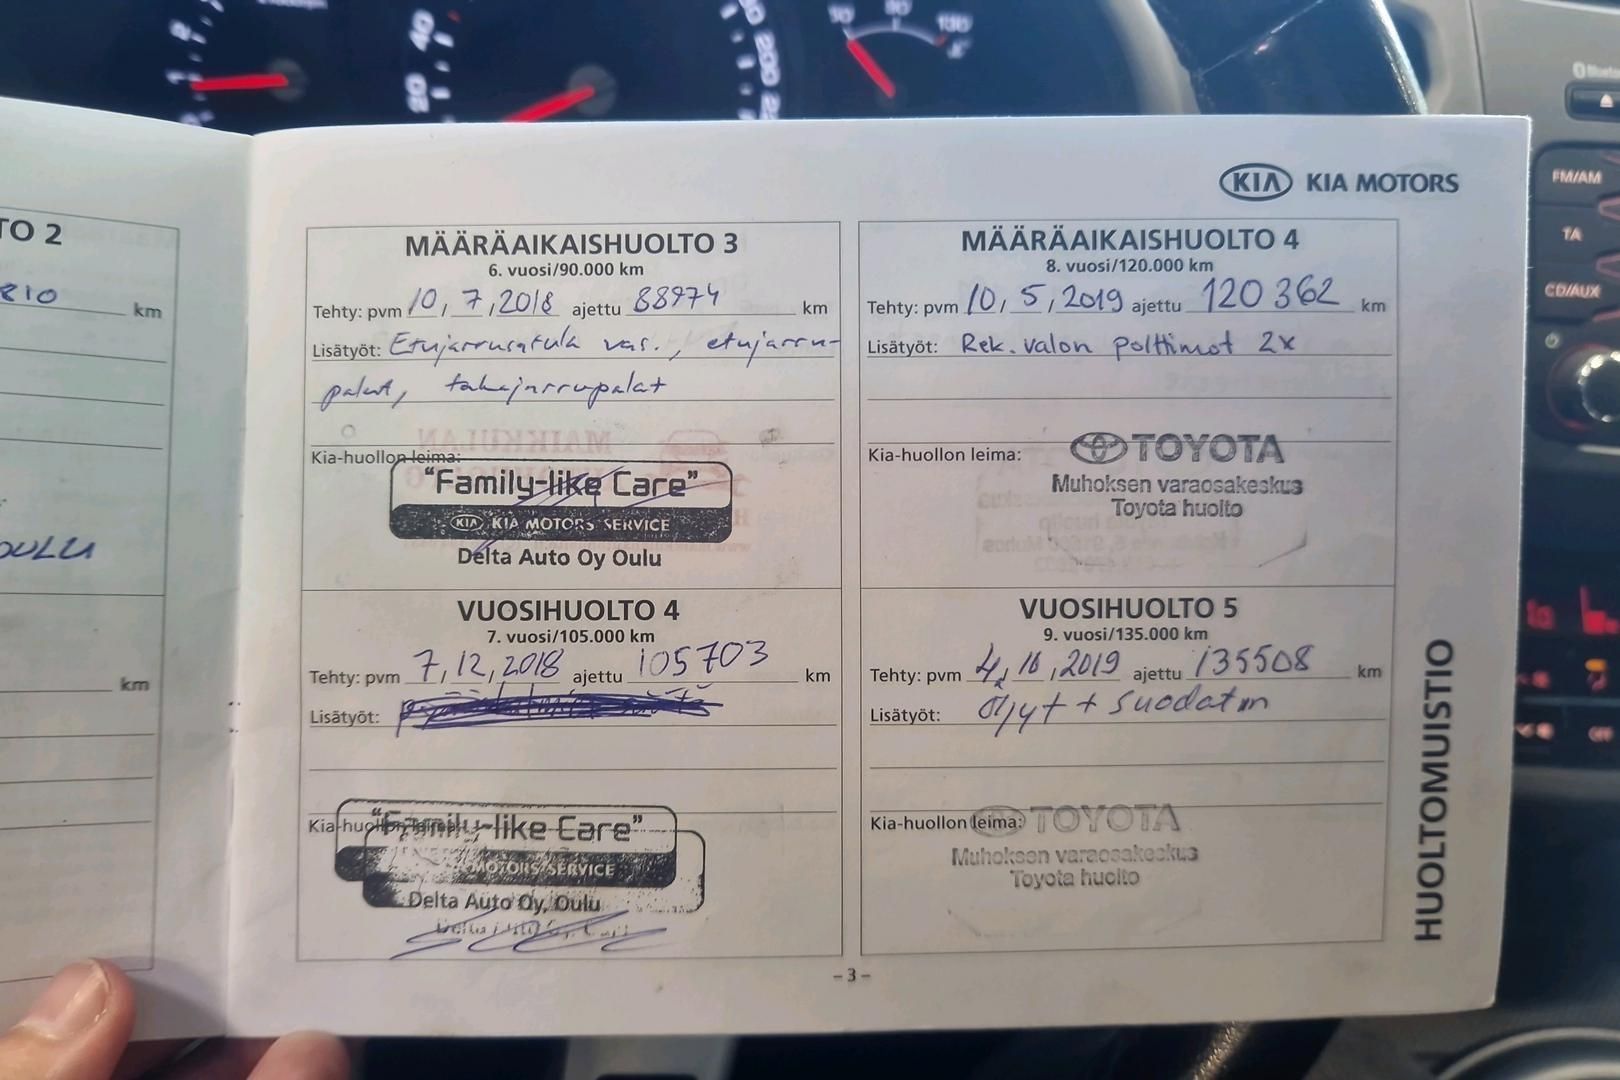 TO 2
810 km
OULU
km
KIA KIA MOTORS
MÄÄRÄAIKAISHUOLTO 3
6. vuosi/90.000 km
Tehty: pvm 10, 7, 2018 ajettu 88974 km
Lisätyöt: Etujarrusatula vas., etujarru-
palat, takajarrupalat
Kia-huollon leima:
"Family-like Care"
KIA KIA MOTORS SERVICE
Delta Auto Oy Oulu
MÄÄRÄAIKAISHUOLTO 4
8. vuosi/120.000 km
Tehty: pvm 10, 5, 2019 ajettu 120 362 km
Lisätyöt: Rek. valon polttimot 2x
Kia-huollon leima:
TOYOTA
Muhoksen varaosakeskus
Toyota huolto
VUOSIHUOLTO 4
7. vuosi/105.000 km
Tehty: pvm 7, 12, 2018 ajettu 105703 km
Lisätyöt:
Kia-huollon leima:
"Family-like Care"
MOTORS SERVICE
Delta Auto Oy, Oulu
VUOSIHUOLTO 5
9. vuosi/135.000 km
Tehty: pvm 4, 10, 2019 ajettu 135508 km
Lisätyöt: Öljyt + suodatin
Kia-huollon leima:
TOYOTA
Muhoksen varaosakeskus
Toyota huolto
HUOLTOMUISTIO
- 3 -
FM/AM
TA
CD/AUX
OFF